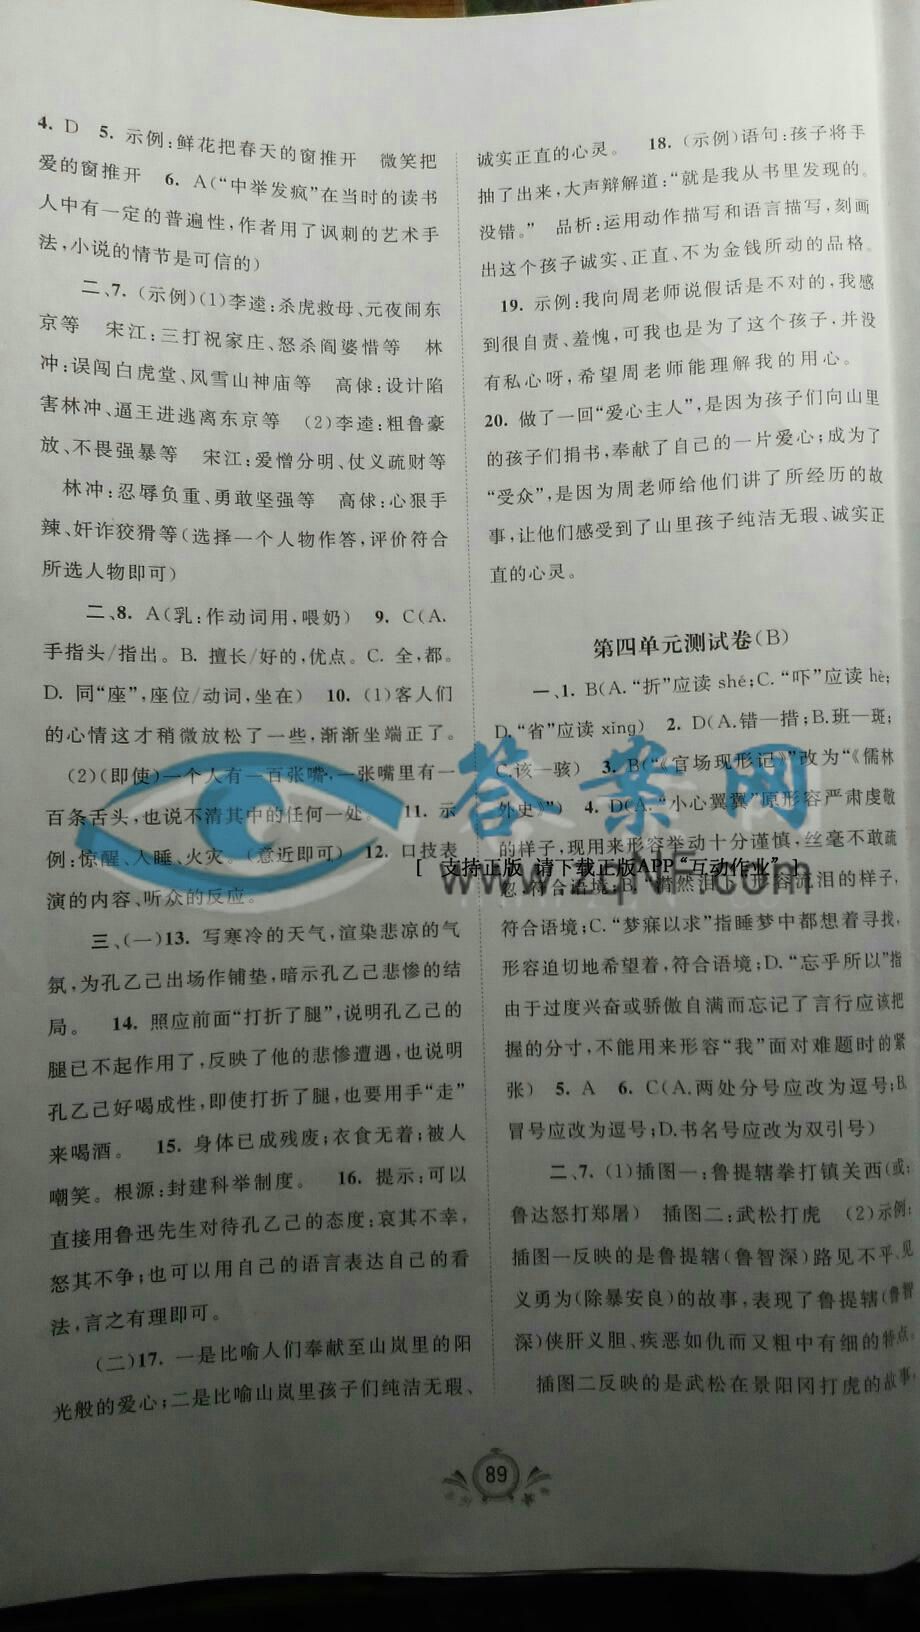 4. D 5. 示例:鲜花把春天的窗推开 微笑把
爱的窗推开 6. A(“中举发疯”在当时的读书
人中有一定的普遍性,作者用了讽刺的艺术手
法,小说的情节是可信的)
二、7. (示例)(1)李逵:杀虎救母、元夜闹东
京等 宋江:三打祝家庄、怒杀阎婆惜等 林
冲:误闯白虎堂、风雪山神庙等 高俅:设计陷
害林冲、逼王进逃离东京等 (2)李逵:粗鲁豪
放、不畏强暴等 宋江:爱憎分明、仗义疏财等
林冲:忍辱负重、勇敢坚强等 高俅:心狠手
辣、奸诈狡猾等(选择一个人物作答,评价符合
所选人物即可)
二、8. A(乳:作动词用,喂奶) 9. C(A.
手指头/指出。B. 擅长/好的,优点。C. 全,都。
D. 同“座”,座位/动词,坐在) 10. (1)客人们
的心情这才稍微放松了一些,渐渐坐端正了。
(2)(即使)一个人有一百张嘴,一张嘴里有一
百条舌头,也说不清其中的任何一处。 11. 示
例:惊醒、入睡、火灾。(意近即可) 12. 口技表
演的内容、听众的反应。
三、(一)13. 写寒冷的天气,渲染悲凉的气
氛,为孔乙己出场作铺垫,暗示孔乙己悲惨的结
局。 14. 照应前面“打折了腿”,说明孔乙己的
腿已不起作用了,反映了他的悲惨遭遇,也说明
孔乙己好喝成性,即使打折了腿,也要用手“走”
来喝酒。 15. 身体已成残废;衣食无着;被人
嘲笑。根源:封建科举制度。 16. 提示:可以
直接用鲁迅先生对待孔乙己的态度:哀其不幸,
怒其不争;也可以用自己的语言表达自己的看
法,言之有理即可。
(二)17. 一是比喻人们奉献至山岚里的阳
光般的爱心;二是比喻山岚里孩子们纯洁无瑕、
诚实正直的心灵。 18. (示例)语句:孩子将手
抽了出来,大声辩解道:“就是我从书里发现的。
没错。” 品析:运用动作描写和语言描写,刻画
出这个孩子诚实、正直、不为金钱所动的品格。
19. 示例:我向周老师说假话是不对的,我感
到很自责、羞愧,可我也是为了这个孩子,并没
有私心呀,希望周老师能理解我的用心。
20. 做了一回“爱心主人”,是因为孩子们向山里
的孩子们捐书,奉献了自己的一片爱心;成为了
“受众”,是因为周老师给他们讲了所经历的故
事,让他们感受到了山里孩子纯洁无瑕、诚实正
直的心灵。
第四单元测试卷(B)
一、1. B(A.“折”应读 shé;C.“吓”应读 hè;
D.“省”应读 xǐng) 2. D(A.错—措;B.班—斑;
C.该—骇) 3. B(“《官场现形记》”改为“《儒林
外史》”) 4. D(A.“小心翼翼”原形容严肃虔敬
的样子,现用来形容举动十分谨慎,丝毫不敢疏
忽,符合语境;B.“潸然泪下”形容流泪的样子,
符合语境;C.“梦寐以求”指睡梦中都想着寻找,
形容迫切地希望着,符合语境;D.“忘乎所以”指
由于过度兴奋或骄傲自满而忘记了言行应该把
握的分寸,不能用来形容“我”面对难题时的紧
张) 5. A 6. C(A.两处分号应改为逗号;B.
冒号应改为逗号;D.书名号应改为双引号)
二、7. (1)插图一:鲁提辖拳打镇关西(或:
鲁达怒打郑屠) 插图二:武松打虎 (2)示例:
插图一反映的是鲁提辖(鲁智深)路见不平、见
义勇为(除暴安良)的故事,表现了鲁提辖(鲁智
深)侠肝义胆、疾恶如仇而又粗中有细的特点。
插图二反映的是武松在景阳冈打虎的故事,
89
答案网
[ 支持正版 请下载正版APP“互动作业” ]
www.zqnf.com